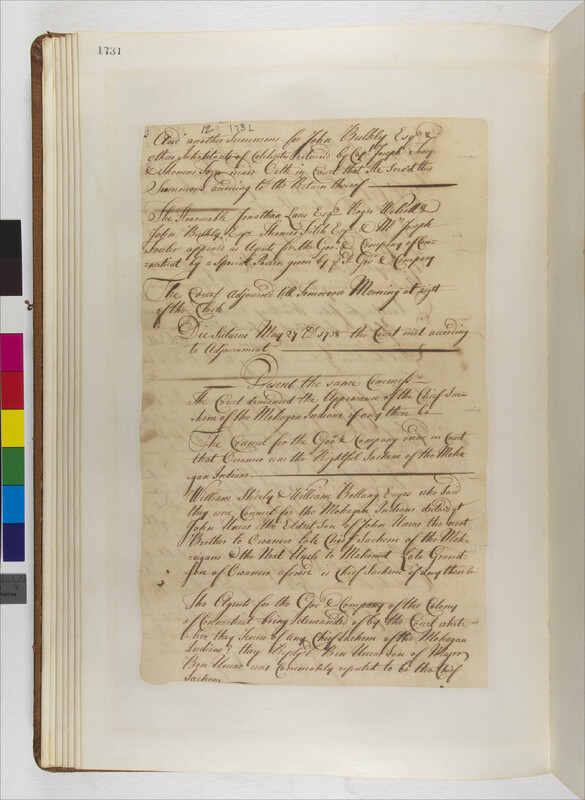 1731
12 173
And another Summons for John Bulkly Esqr &
other Inhabitants of Colchester Returned by Capt Joseph
& Thomas made Oath in Court that He Serv'd this
Summons according to the Return thereof
The Honourable Jonathan Law Esqr Roger Wolcott &
John Bulkly Esqrs Thomas Fitch Esqr & Mr Joseph
Fowler appear'd as Agents for the Govr & Company of Con-
necticut by a Special Power given by Govr & Company
The Court Adjourned till Tomorrow Morning at eight
of the Clock
Die Saturni May 27th 1738 the Court met according
to Adjournment
Present the same Commissrs
The Court demanded the Appearance of the Chief Sac-
hem of the Mohegan Indians if any there be
The Council for the Govr & Company in Court
that was the Rightful Sachem of the Mohe-
gan Indians
William Shirly & William Bollang Esqrs who Said
they were Council for the Mohegan Indians declar'd yt
John Uncas the Eldest Son of John Uncas the next
Brother to Owaneco late Chief Sachem of the Moh-
egans & the Next Uncle to Mahomet Late Grand
Son of Owaneco aforesd is Chief Sachem if any there be
The Agents for the Govr & Company of the Colony
of Connecticut being demanded of by the Court whet-
her they knew of any Chief Sachem of the Mohegan
Indians? they Reply'd Ben Uncas Son of Major
Ben Uncas was Commonly reputed to be the Chief
Sachem